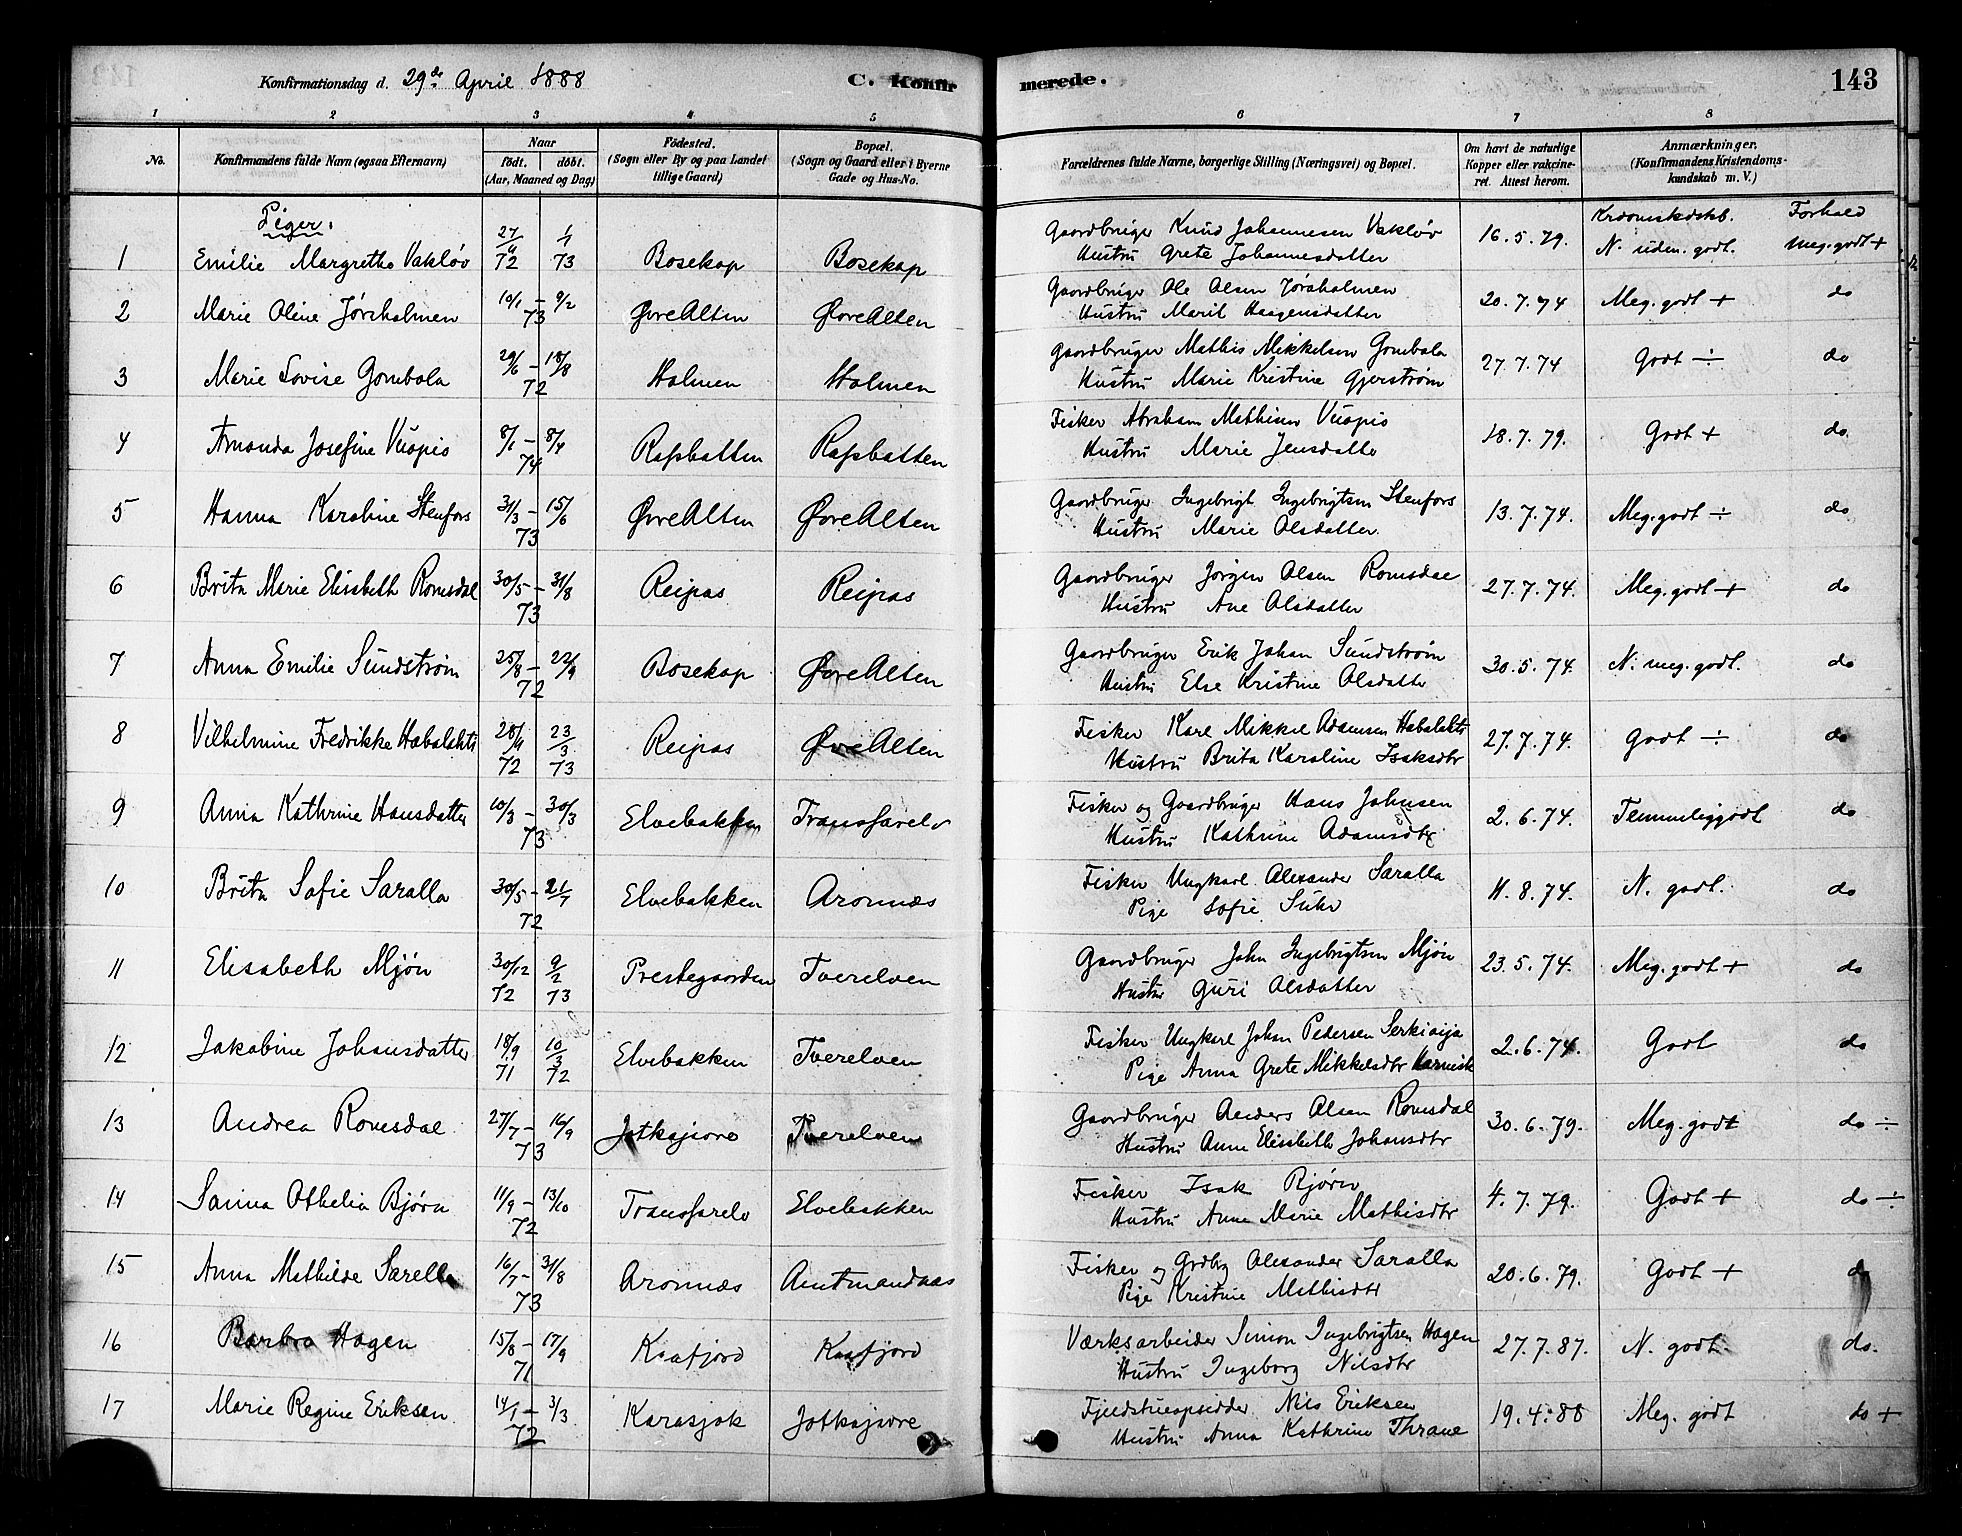 Konfirmationsdag d. 29de April 1888
C. Konfirmerede.
143
1 2 3 4 5 6 7 8
No.
Konfirmandens fulde Navn (ogsaa Efternavn)
Naar
födt. döbt.
(Aar, Maaned og Dag)
Födested.
(Sogn eller By og paa Landet
tillige Gaard)
Bopæl.
(Sogn og Gaard eller i Byerne
Gade og Hus-No.
Forældrenes fulde Navne, borgerlige Stilling (Næringsvei) og Bopæl.
Om havt de naturlige
Kopper eller vakcine-
ret. Attest herom.
Anmærkninger.
(Konfirmandens Kristendoms-
kundskab m. V.)
Piger.
Forhold
1 Emilie Margrethe Vakløv 27/4 72 1/1 73 Bosekop Bosekop Gaardbruger Knud Johannesen Vakløv 16.5.79. N. uden. godt. meg. godt +
Hustru Grete Johannesdatter
2 Marie Oline Jørsholmen 10/1 – 9/2 73 ØvreAlten ØvreAlten Gaardbruger Ole Olsen Jørsholmen 20.7.74 Meg. godt + do
Hustru Marit Haagensdatter
3 Marie Lovise Gombola 29/6 – 18/8 72 Holmen Holmen Gaardbruger Mathis Mikkelsen Gombola 27.7.74 Godt ÷ do
Hustru Marie Kristine Gjerstrøm
4 Amanda Josefine Vuopio 8/1 – 8/4 74 Rafsbotten Rafsbotten Fisker Abraham Mathisen Vuopio 18.7.79. Godt + do
Hustru Marie Jensdatter
5 Hanna Karoline Stenfors 31/3 – 15/6 73 ØvreAlten ØvreAlten Gaardbruger Ingebrigt Ingebrigtsen Stenfors 13.7.74. Meg. godt ÷ do
Hustru Marie Olsdatter.
6 Brita Marie Elisabeth Romsdal 30/5 – 31/8 73 Reipas Reipas Gaardbruger Jørgen Olsen Romsdal 27.7.74. Meg. godt + do
Hustru Ane Olsdatter
7 Anna Emilie Sundstrøm 25/8 – 22/9 72 Bosekop ØvreAlten Gaardbruger Erik Johan Sundstrøm 30.5.74. N. meg. godt. do
Hustru Else Kristine Olsdatter
8 Vilhelmine Fredrikke Habalakts 28/4 72 23/3 73 Reipas ØvreAlten Fisker Karl Mikkel Adamsen Habalakts 27.7.74. Godt ÷ do
Hustru Brita Karoline Isaksdtr
9 Anna Kathrine Hansdatter 10/3 – 30/3 73 Elvebakken Transfarelv Fisker og Gaardbruger Hans Johnsen 2.6.74. Temmeliggodt do
Hustru Kathrine Adamsdtr
10 Brita Sofie Saralla 30/5 – 21/7 72 Elvebakken Aronnæs Fisker Ungkarl Alexander Saralla 11.8.74. N. godt. do
Pige Sofie Suhr
11 Elisabeth Mjøn 30/12 72 9/2 73 Prestegaarden Tverelven Gaardbruger John Ingebrigtsen Mjøn 23.5.74. Meg. godt + do
Hustru Guri Olsdatter
12 Jakobine Johansdatter 18/9 71 10/3 72 Elvebakken Tverelven Fisker Ungkarl Johan Pedersen 2.6.74. Godt do
Pige Anna Grete Mikkelsdtr
13 Andrea Romsdal 27/7 – 14/9 73 Jotkajavre Tverelven Gaardbruger Anders Olsen Romsdal 30.6.79. Meg. godt do ÷
Hustru Anne Elisabeth Johansdtr
14 Sanna Othelia Bjørn 11/9 – 13/10 72 Transfarelv Elvebakken Fisker Isak Bjørn 4.7.79. Godt + do ÷
Hustru Anne Marie Mathisdtr
15 Anna Mathilde Sarella 16/7 – 31/8 73 Aronnæs Amtmandnæs Fisker og Grdbg Alexander Saralla 20.6.79. Godt + do
Pige Kristine Mathisdtr
16 Barbro Hagen 15/8 – 17/9 71 Kaafjord Kaafjord Værksarbeider Simon Ingebrigtsen Hagen 27.7.87. N. godt. do.
Hustru Ingeborg Nilsdtr
17 Marie Regine Eriksen 14/1 – 3/3 72 Karasjok Jotkajavre Fjeldstueopsidder Nils Eriksen 19.4.88 Meg. godt do +
Hustru Anna Kathrine Thrane